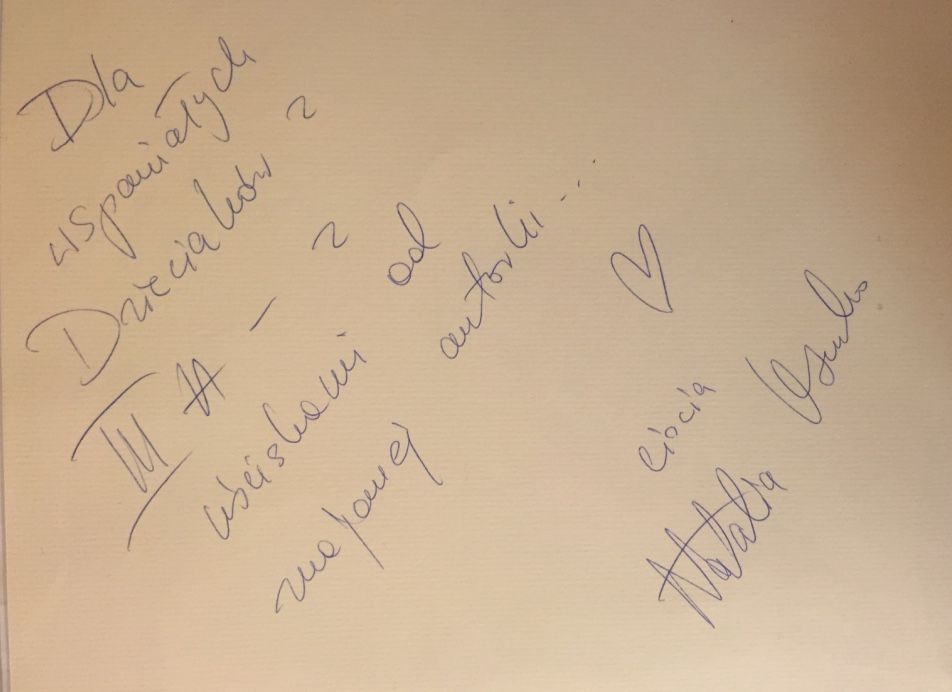 Dla
wspaniałych
Dzieciaków z
III A - z
uściskami od
znajomej autorki...
ciocia
Natalia